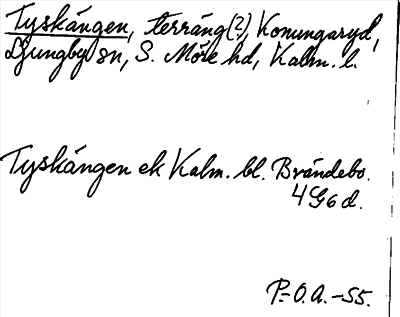 Tyskängen, terräng(?), Konungaryd,
Ljungby sn, S. Möre hd, Kalm. l.
Tyskängen ek Kalm. bl. Brändebo.
4G6d.
P.-O.A. -55.